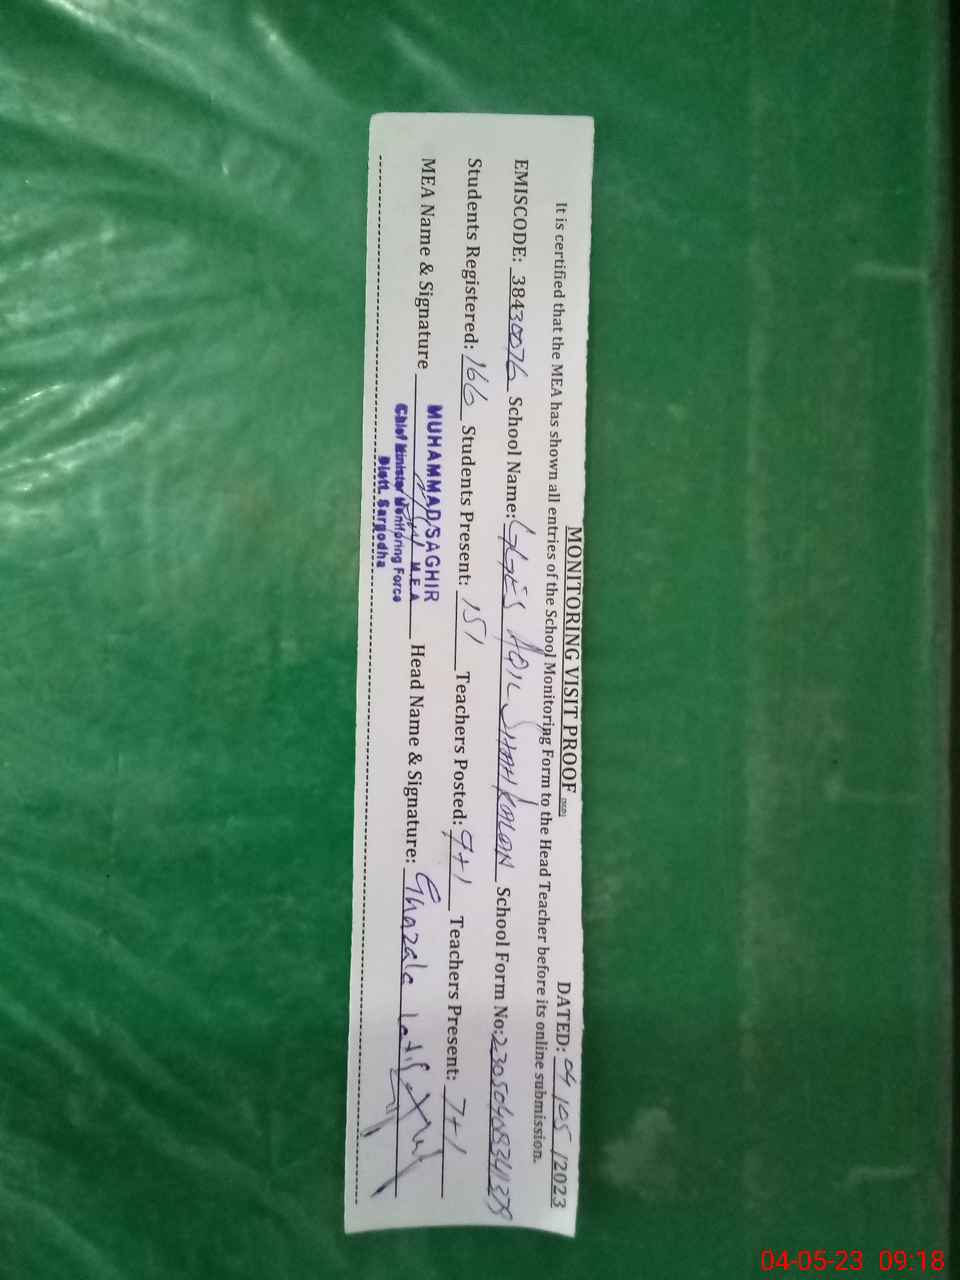 MONITORING VISIT PROOF DATED: 04/05/2023
It is certified that the MEA has shown all entries of the School Monitoring Form to the Head Teacher before its online submission.
EMISCODE: 38430076 School Name: GGES AQIL SHAH KALAN School Form No:
Students Registered: 166 Students Present: 151 Teachers Posted: 9+1 Teachers Present: 7+1
MEA Name & Signature Head Name & Signature: Ghazala latif
MUHAMMAD SAGHIR
M.E.A
Chief Minister Monitoring Force
Distt. Sargodha
04-05-23 09:18